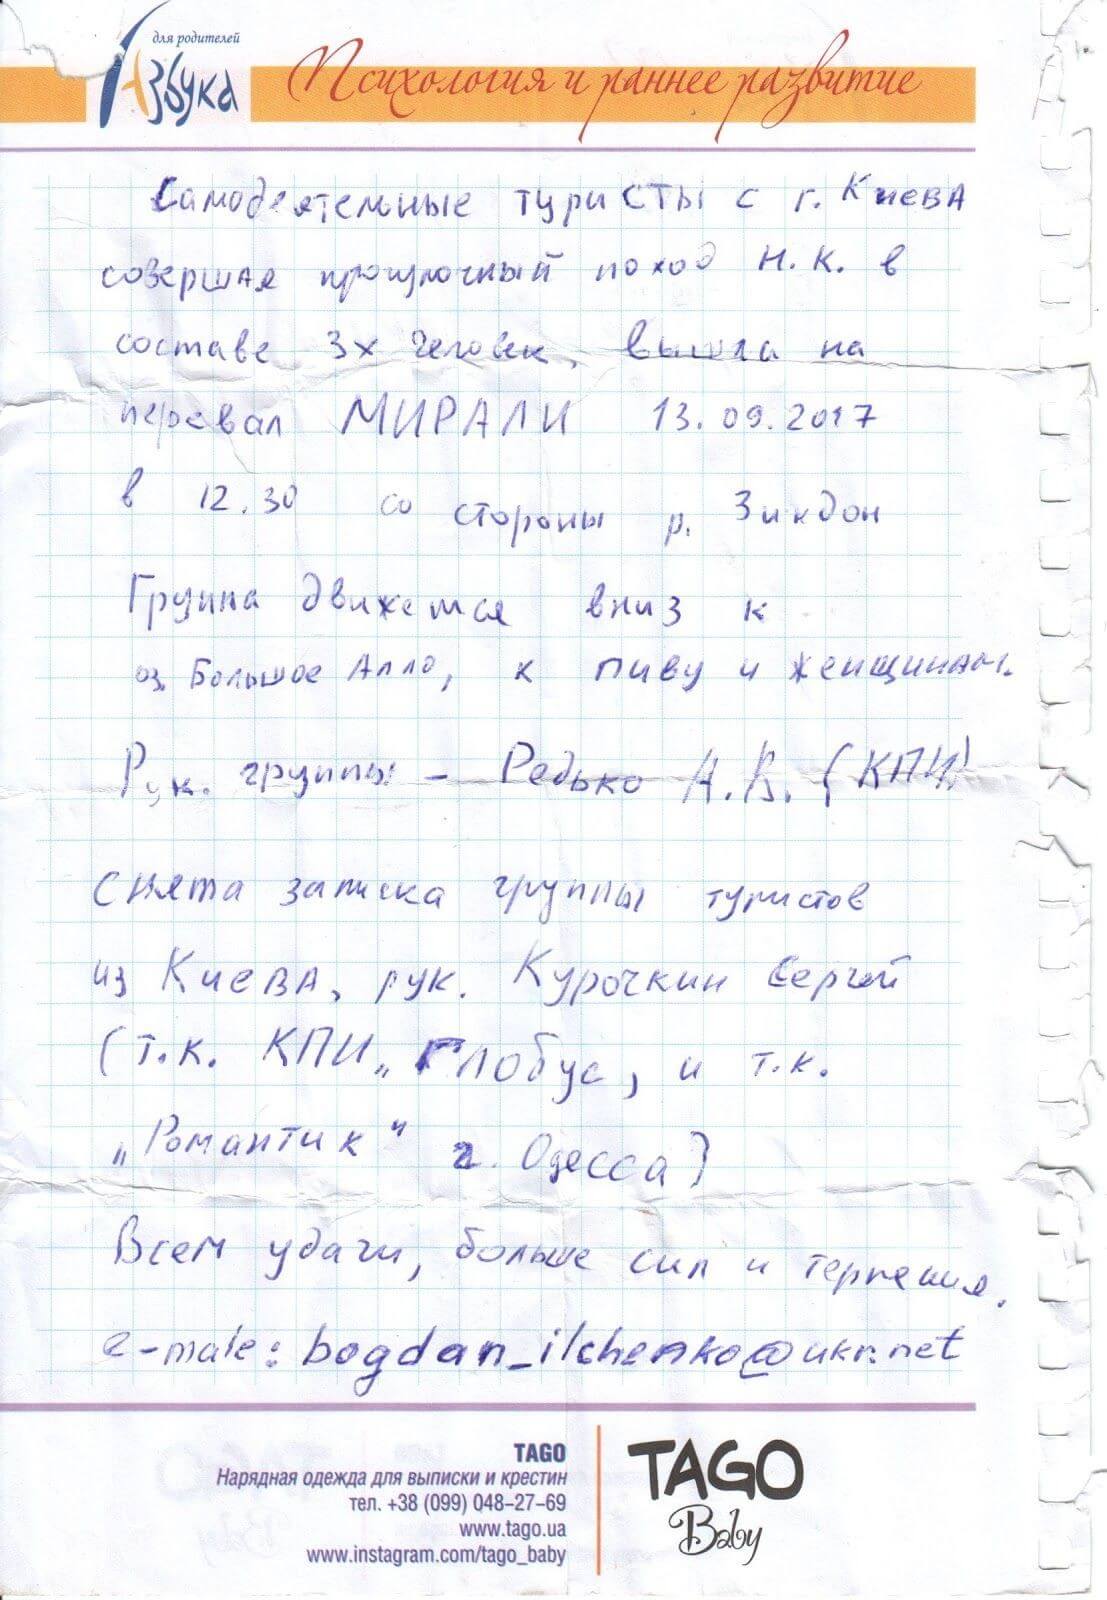 для родителей
Азбука
Психология и раннее развитие
Самодеятельные туристы с г. Киева
совершая прогулочный поход Н.К. в
составе 3х человек, вышла на
перевал МИРАЛИ 13.09.2017
в 12.30 со стороны р. Зиндон
Группа движется вниз к
оз. Большое Алло, к пиву и женщинам.
Рук. группы - Редько А.В. (КПИ)
Снята записка группы туристов
из Киева, рук. Курочкин Сергей
(т.к. КПИ „Глобус, и т.к.
„Романтик" г. Одесса)
Всем удачи, больше сил и терпения.
e-male: bogdan_ilchenko@ukr.net
TAGO
Нарядная одежда для выписки и крестин
тел. +38 (099) 048-27-69
www.tago.ua
www.instagram.com/tago_baby
TAGO
Baby